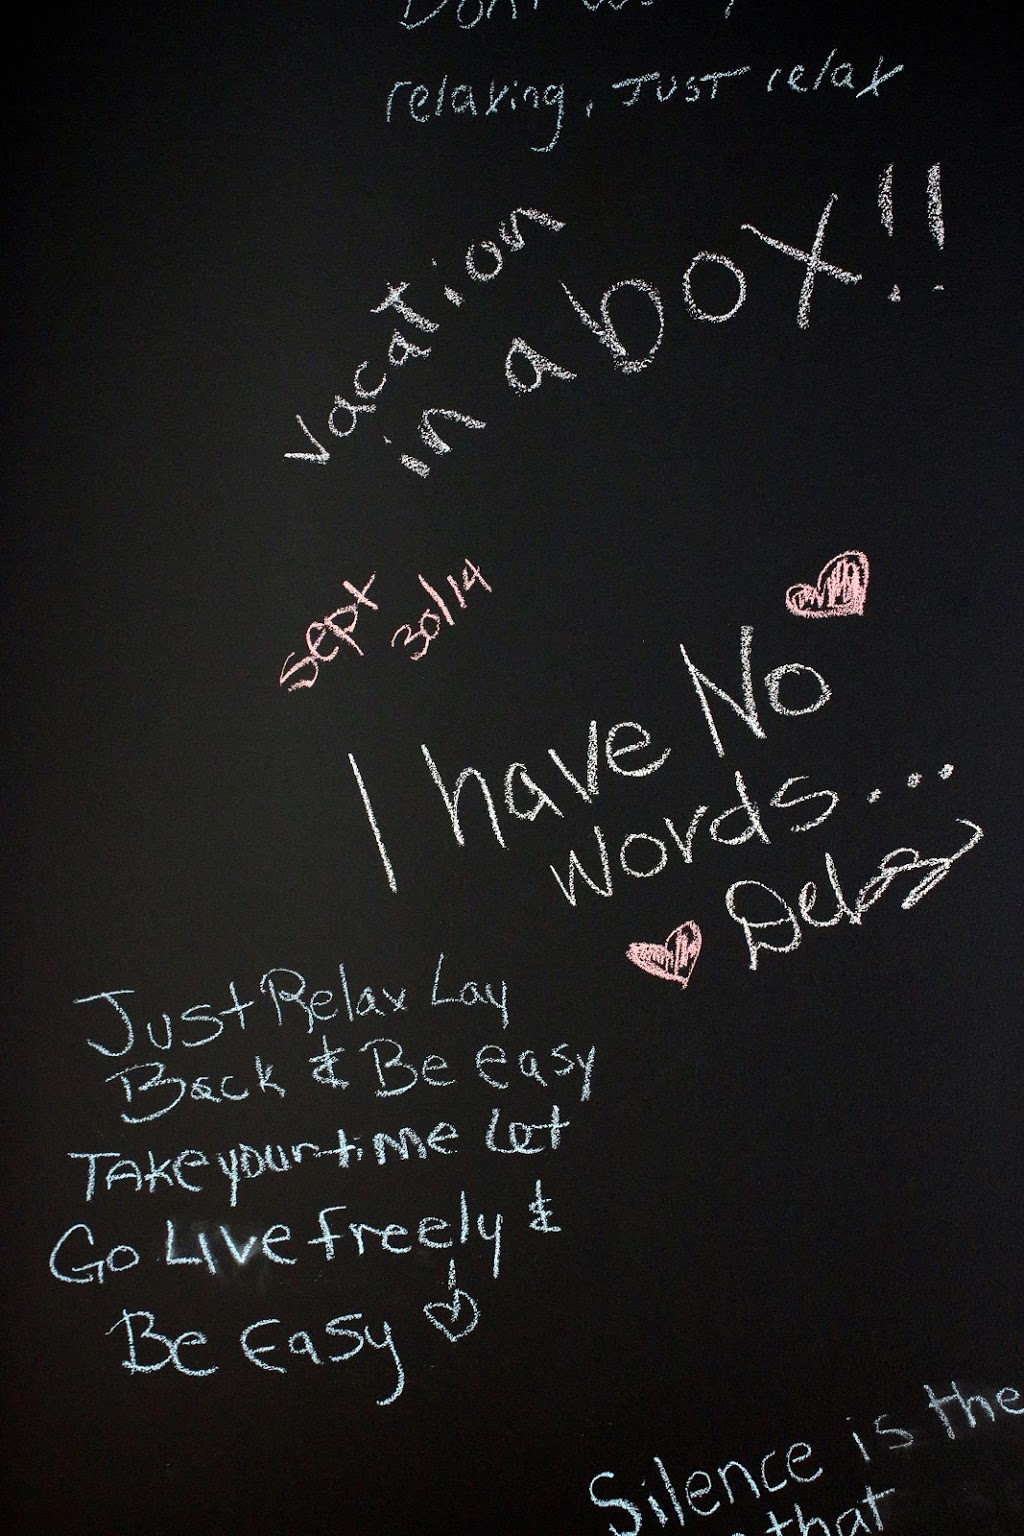 relaxing. Just relax
vacation
in a box!!
sept 30/14
I have No
words...
Just Relax Lay
Back & Be easy
Take your time Let
Go Live freely &
Be Easy
Silence is the
that